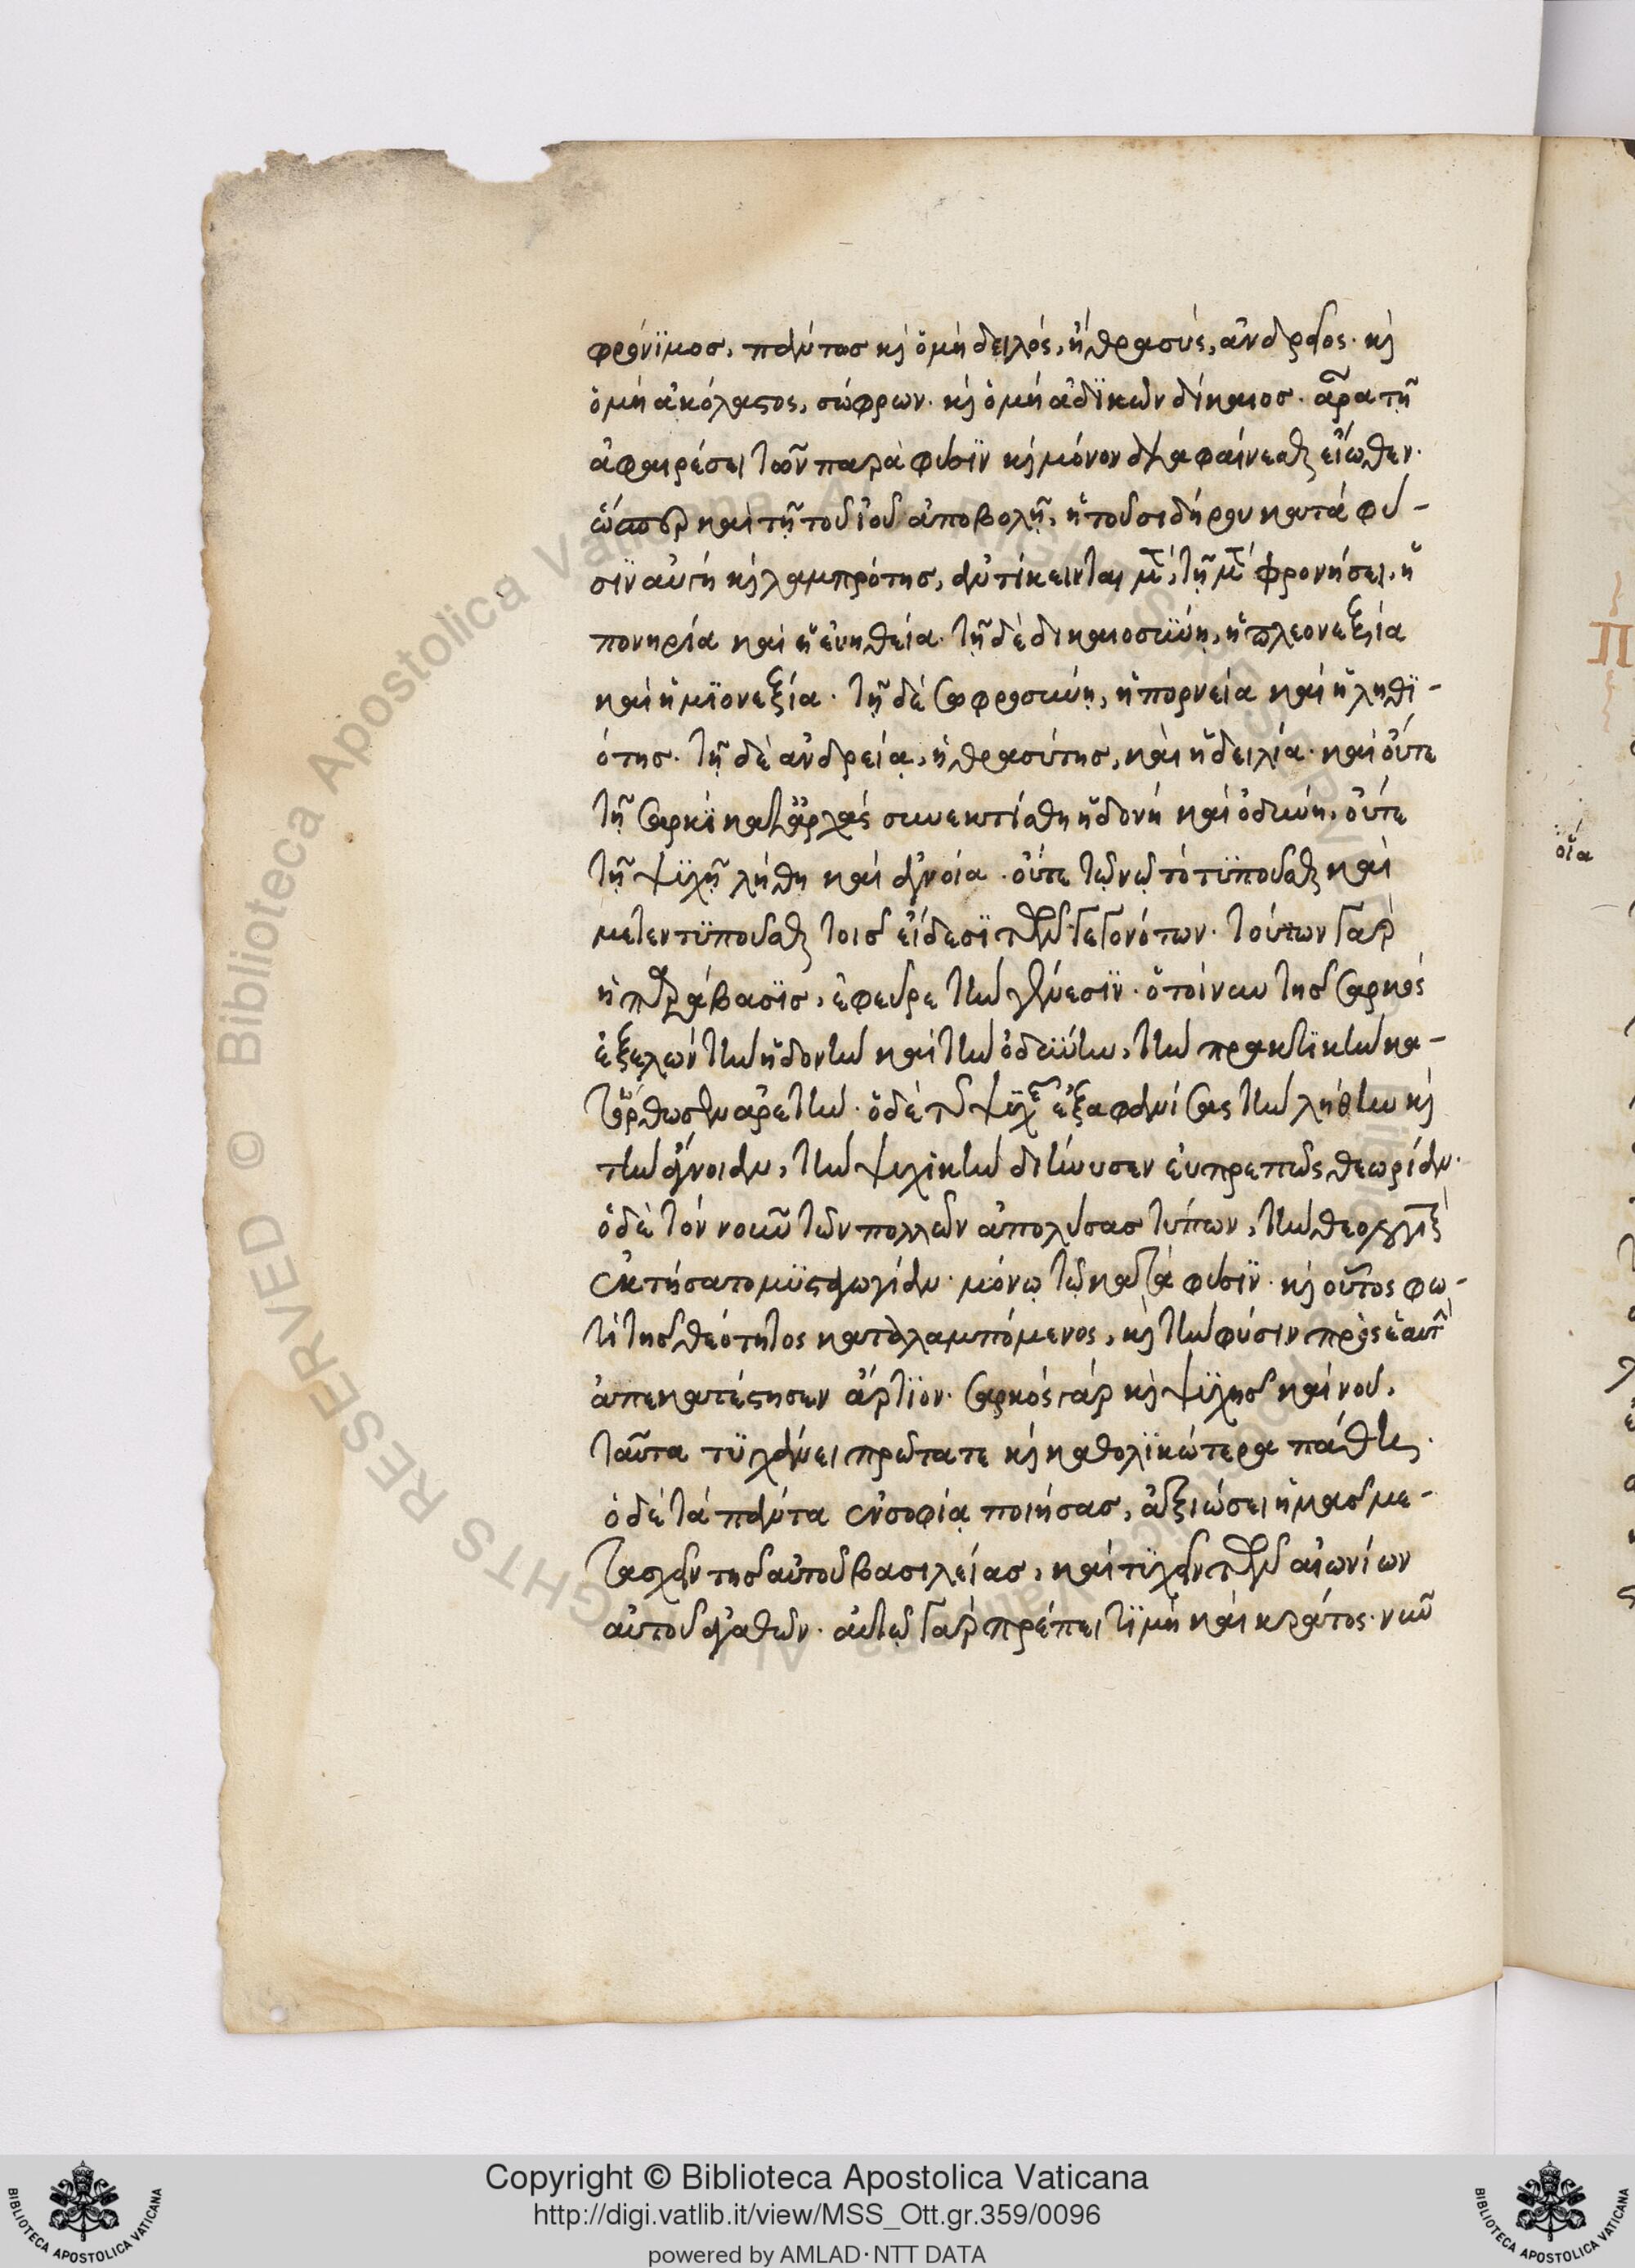 φρόνϊμοσ, πάντωσ κὶ ὁ μὴ δειλός, ἢ θρασύς, ἀνδρεῖος· κὶ
ὁ μὴ ἀκόλαστος, σώφρων· κὶ ὁ μὴ ἀδϊκῶν δίκαιοσ· ἄρα τῇ
ἀφαιρέσει τῶν παρὰ φύσϊν κὶ μόνον διαφαίνεσθαι εἴωθεν·
ὥσπερ καὶ τῇ τοῦ ἰοῦ ἀποβολῇ, ἡ τοῦ σιδήρου κατὰ φύ-
σϊν αὐγὴ κὶ λαμπρότησ, ἀντίκεινται μὲν, τῇ μὲν φρονήσει, ἡ
πονηρία καὶ ἡ εὐήθεία· τῇ δὲ δικαιοσϋνῃ, ἡ πλεονεξία
καὶ ἡ μϊονεξία· τῇ δὲ σωφροσύνῃ, ἡ πορνεία καὶ ἡ ληθϊ-
ότησ· τῇ δὲ ἀνδρείᾳ, ἡ θρασύτησ, καὶ ἡ δειλία· καὶ οὔτε
τῇ σαρκὶ καταρχὰς συνεκτίσθη ἡδονὴ καὶ ὀδύνη, οὔτε
τῇ ψϋχῇ λήθη καὶ ἄγνοία· οὔτε τῷ νῷ τὸ τϋποῦσθαι καὶ
μετεντϋποῦσθαι τοῖσ εἴδεσϊ τῶν γεγονότων· τούτων γὰρ
ἡ παράβασϊσ, ἐφεῦρε τὴν γένεσϊν· ὁ τοίνυν τῆσ σαρκὸς
ἐξελὼν τὴν ἡδονὴν καὶ τὴν ὀδϋνην, τὴν πρακτϊκὴν κα-
τώρθωσεν ἀρετὴν· ὁ δὲ τῆσ ψϋχῆσ ἐξαφανίσας τὴν λήθην κὶ
τὴν ἄγνοιαν, τὴν ψυχικὴν διήνυσεν εὐπρεπῶς θεωρίαν·
ὁ δὲ τὸν νοῦν τῶν πολλῶν ἀπολύσασ τύπων, τὴν θεολογικὴν
ἐκτήσατο μϋσταγωγίαν· μόνῳ τῷ κατὰ φύσϊν· κὶ οὕτος φω-
τὶ τῆσ θεότητος καταλαμπόμενος, κὶ τὴν φύσιν πρὸς ἑαυτὴν
ἀπεκατέστησεν ἄρτϊον· σαρκὸς γάρ κὶ ψϋχῆσ καὶ νοῦ,
ταῦτα τϋγχάνει πρῶτα τε κὶ καθολϊκώτερα πάθη·
ὁ δὲ τὰ πάντα ἐν σοφίᾳ ποιήσασ, ἀξιώσει ἡμᾶσ με-
τασχεῖν τῆσ αὐτοῦ βασιλείασ, καὶ τϋχεῖν τῶν αἰωνίων
αὐτοῦ ἀγαθῶν· αὐτῷ γὰρ πρέπει τϊμὴ καὶ κράτος· νῦν
οἷα
Copyright © Biblioteca Apostolica Vaticana
http://digi.vatlib.it/view/MSS_Ott.gr.359/0096
powered by AMLAD·NTT DATA
BIBLIOTECA APOSTOLICA VATICANA
BIBLIOTECA APOSTOLICA VATICANA